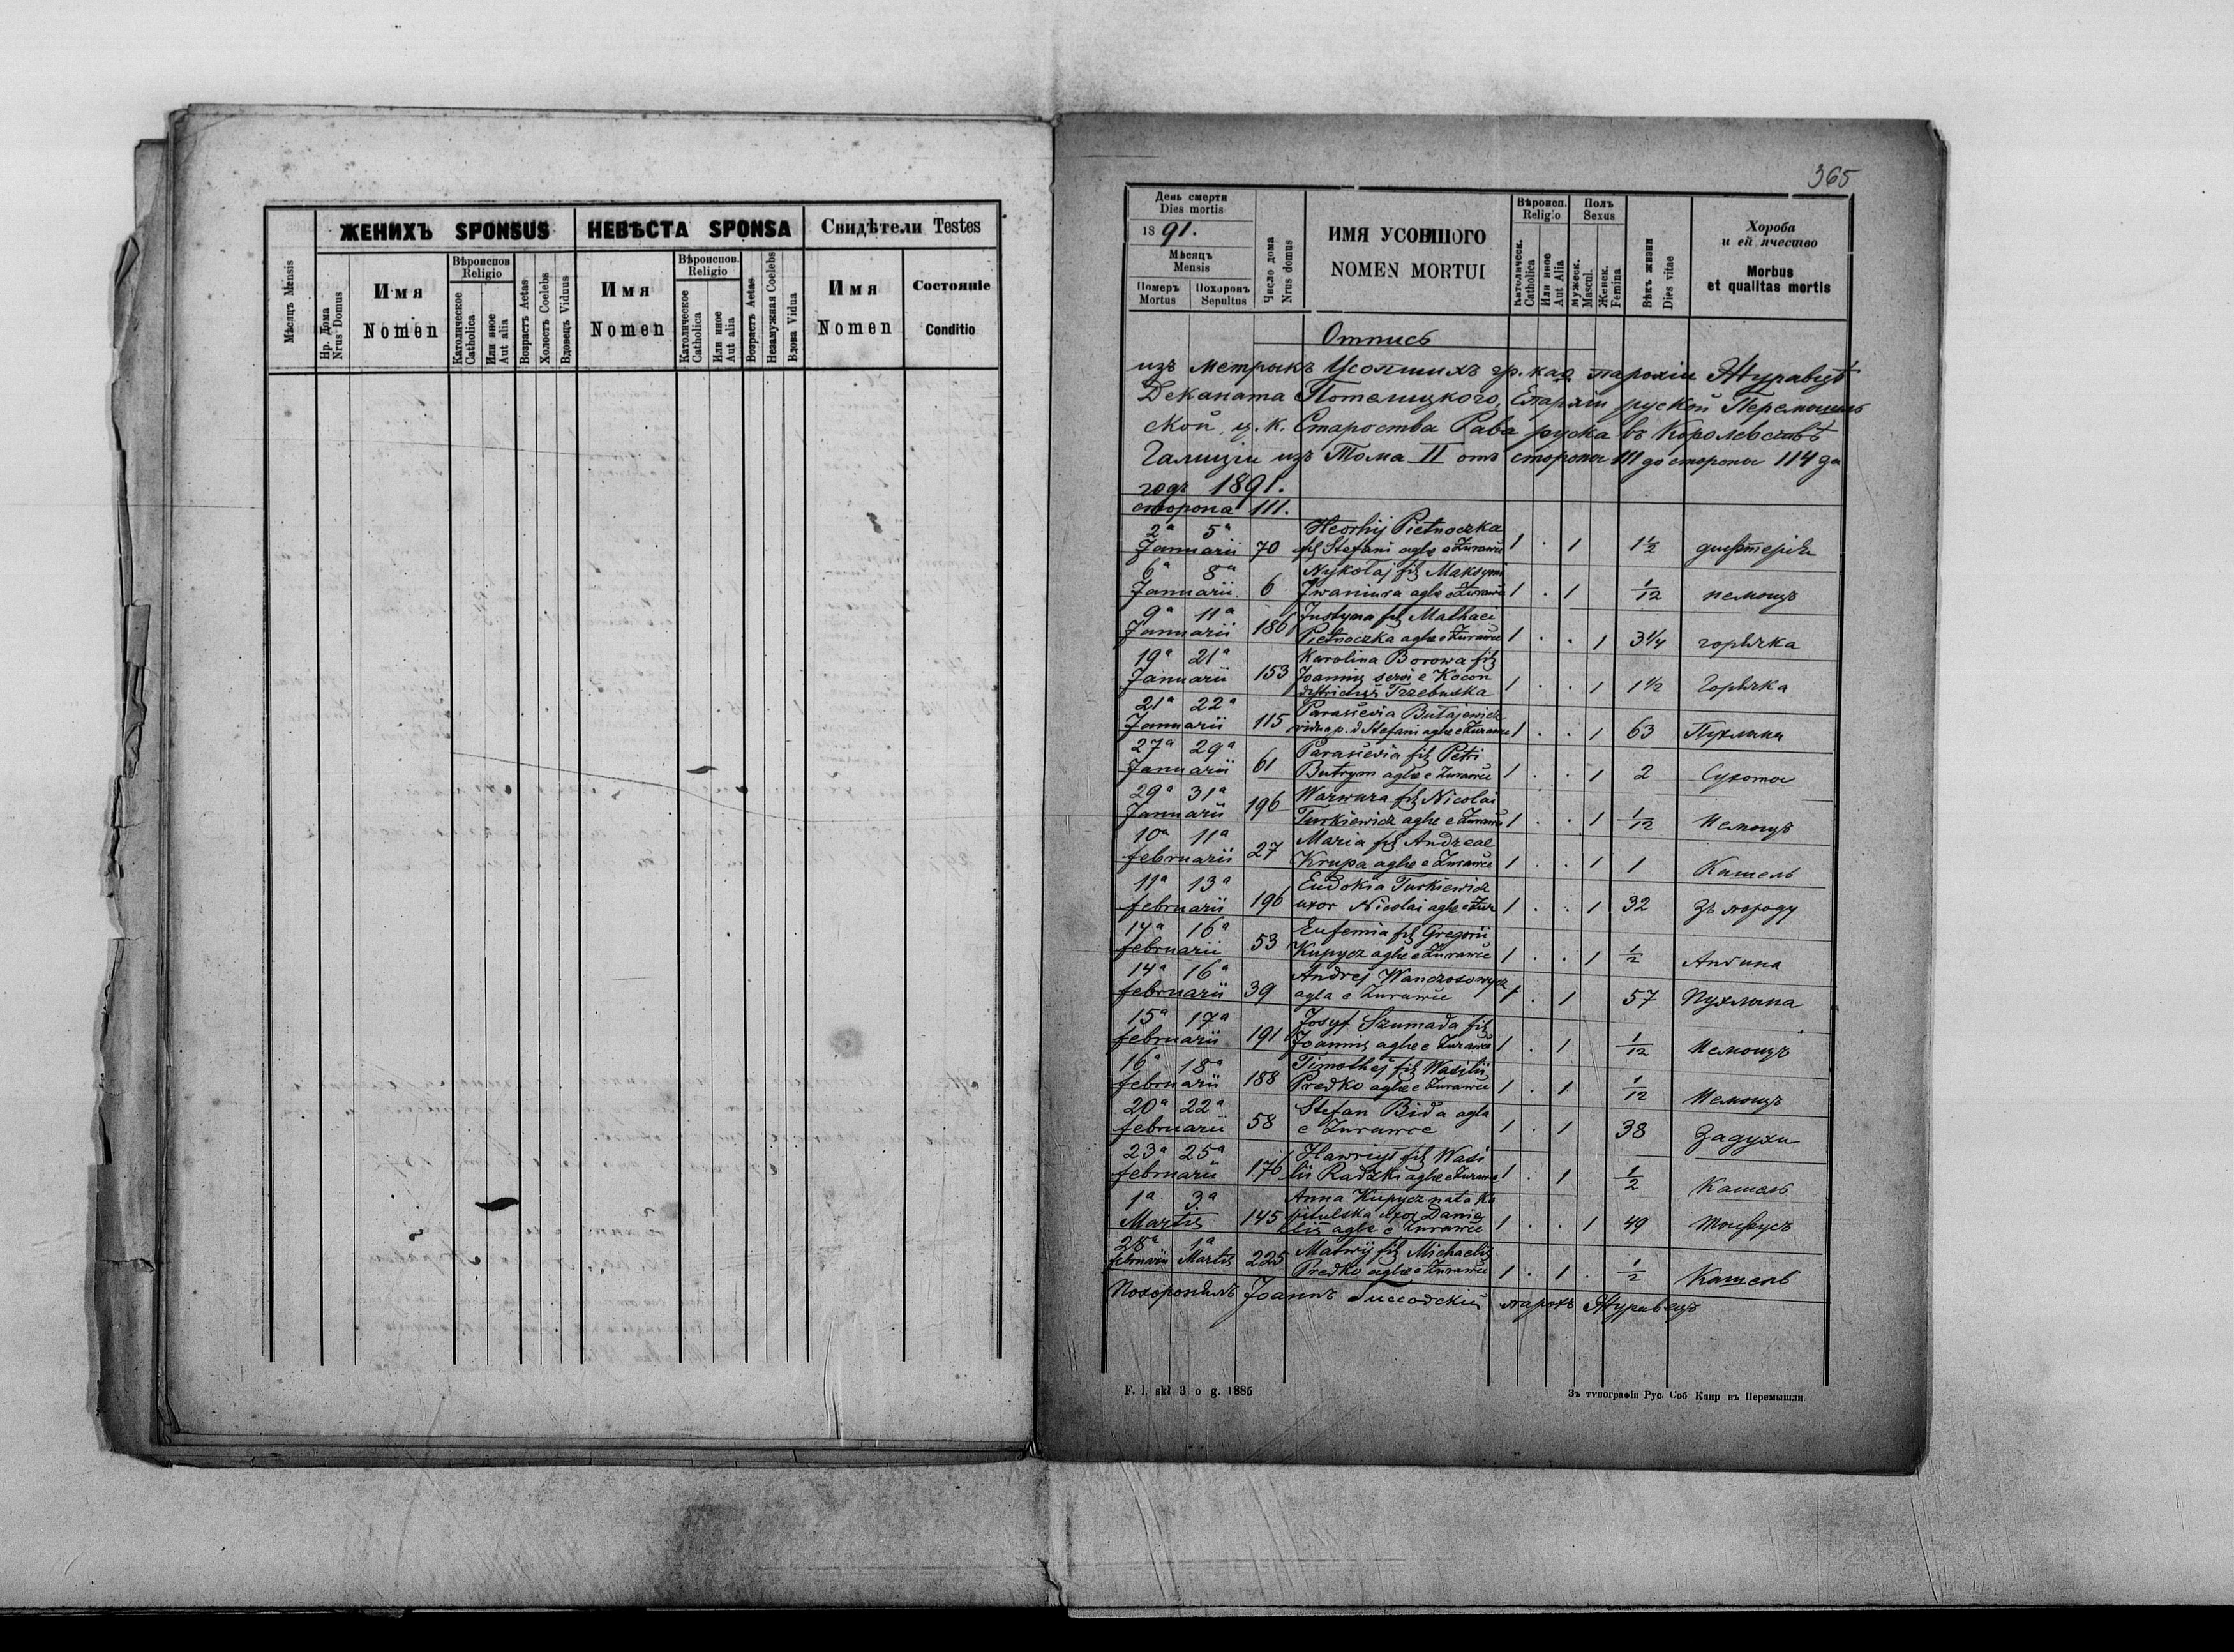 ЖЕНИХЪ SPONSUS
НЕВѢСТА SPONSA
Свидѣтели Testes
Мѣсяцъ Mensis
Нр. Дома
Nrus Domus
Имя
Nomen
Вѣроиспов
Religio
Католическое
Catholica
Или иное
Aut alia
Возрастъ Aetas
Холостъ Coelebs
Вдовецъ Viduus
Имя
Nomen
Вѣроиспов.
Religio
Католическое
Catholica
Или иное
Aut alia
Возрастъ Aetas
Незамужная Coelebs
Вдова Vidua
Имя
Nomen
Состояніе
Conditio
365
День смерти
Dies mortis
1891.
Мѣсяцъ
Mensis
Померъ
Mortus
Похоронъ
Sepultus
Число дома
Nrus domus
ИМЯ УСОПШОГО
NOMEN MORTUI
Вѣроисп.
Religio
Католическ.
Catholica
Или иное
Aut Alia
Полъ
Sexus
Мужеск.
Mascul.
Женск.
Femina
Вѣкъ жизни
Dies vitae
Хороба
и ей ячество
Morbus
et qualitas mortis
Отпись
изъ метрыкъ Усопшихъ гр. кат парохіи Журавцѣ
Деканата Потелицкого, Епархіи руской Перемышль
ской, ц. к. Староства Рава руска въ Королевствѣ
Галиціи изъ Тома II отъ стороны 111 до стороны 114 за
годъ 1891.
сторона 111.
2a 5a Heorhij Pietnoczka
Januarii 70 fil Stefani aglae e Żurawce 1 . 1 1½ дифтерія
6a 8a Nykolaj fil Maksymi
Januarii 6 Iwaniura aglae e Żurawce 1 . 1 1/12 немощъ
9a 11a Justyna fil Mathaei
Januarii 186 Pietnoczka aglae e Żurawce 1 . . 1 3¼ горячка
19a 21a Karolina Borowa fil
Januarii 153 Joannis servi e Kocon 1 . . 1 1½ Горячка
districtus Trzebuska
21a 22a Parasievia Butajewicz
Januarii 115 vidua p. d Stefani aglae e Żurawce 1 . . 1 63 Пухлина
27a 29a Parasievia fil Petri
Januarii 61 Butrym aglae e Żurawce 1 . . 1 2 Сухоты
29a 31a Warwara fil Nicolai
Januarii 196 Turkiewicz aglae e Żurawce 1 . . 1 1/12 Немощъ
10a 11a Maria fil Andreae
februarii 27 Krupa aglae e Żurawce 1 . . 1 1 Кашель
11a 13a Eudokia Turkiewicz
februarii 196 uxor Nicolai aglae e Żur 1 . . 1 32 Зъ породу
14a 16a Eufemia fil Gregorii
februarii 53 Kupycz aglae e Żurawce 1 . . 1 ½ Ангина
14a 16a Andrej
februarii 39 agla e Żurawce 1 . 1 57 Пухлина
15a 17a Josyf Szumada fil
februarii 191 Joannis aglae e Żurawce 1 . 1 1/12 Немощъ
16a 18a Timothej fil Wasilii
februarii 188 Predko aglae e Żurawce 1 . 1 1/12 Немощъ
20a 22a Stefan Bida agla
februarii 58 e Żurawce 1 . 1 38 Задухи
23a 25a Hawriył fil Wasi
februarii 176 lii Radzki aglae e Żurawce 1 . 1 ½ Кашель
1a 3a Anna Kupycz nata Ka
Martis 145 pitulska uxor Danie 1 . . 1 49 Тифусъ
lis aglae e Żurawce
28a 1a Matwij fil Michaelis
februarii Martis 225 Predko aglae e Żurawce 1 . 1 . ½ Кашель
Похоронилъ Іоаннъ парохъ Журавецъ
F. l. skł 3 o g. 1885
Зъ типографіи Рус. Соб Клир въ Перемышли.